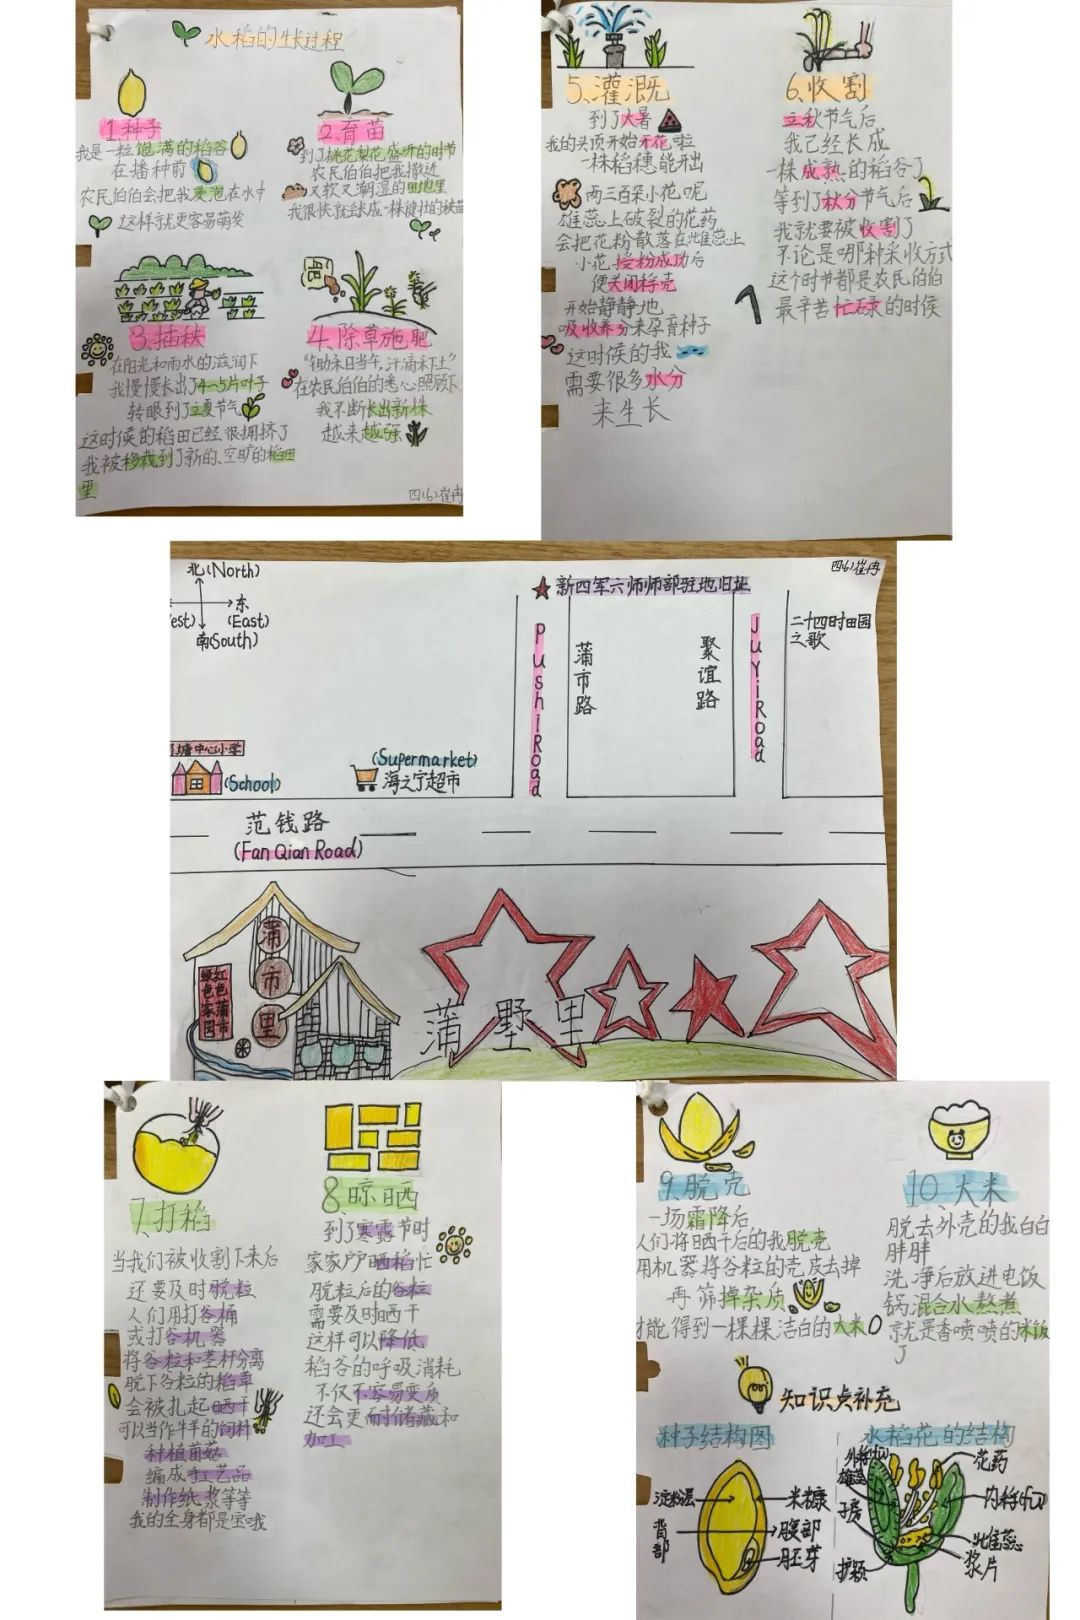 水稻的生长过程
1、种子
我是一粒饱满的稻谷
在播种前
农民伯伯会把我浸泡在水中
这样我就更容易萌发
2、育苗
到了桃花梨花盛开的时节
农民伯伯把我撒进
又软又潮湿的田地里
我很快就会长成一株健壮的秧苗
3、插秧
在阳光和雨水的滋润下
我慢慢长出了4~5片叶子
转眼到了立夏节气
这时候的稻田已经很拥挤了
我被移栽到了新的、空旷的稻田
里
4、除草施肥
“锄禾日当午,汗滴禾下土”
在农民伯伯的悉心照顾下
我不断长出新株
越来越强
四(6)崔冉
5、灌溉
到了大暑
我的头顶开始开花啦
一株稻穗能开出
两三百朵小花呢
雄蕊上破裂的花药
会把花粉散落在雌蕊上
小花授粉成功后
便关闭稃壳
开始静静地
吸收养分来孕育种子
这时候的我
需要很多水分
来生长
6、收割
立秋节气后
我已经长成
一株成熟的稻谷了
等到了秋分节气后
我就要被收割了
不论是哪种采收方式
这个时节都是农民伯伯
最辛苦忙碌的时候
四(6)崔冉
北(North)
东
(East)
est)
南(South)
新四军六师师部驻地旧址
Pushi Road
蒲市路
聚谊路
Juyi Road
二十四时田园
之歌
塘中心小学
(School)
(Supermarket)
海之宁超市
范钱路
(Fan Qian Road)
蒲市里
红色蒲市
绿色家园
蒲墅里
7、打稻
当我们被收割下来后
还要及时脱粒
人们用打谷桶
或打谷机器
将谷粒和茎秆分离
脱下谷粒的稻草
会被扎起晒干
可以当作牛羊的饲料
种植菌菇
编成手工艺品
制作纸浆等等
我的全身都是宝哦
8、晾晒
到了寒露节时
家家户户晒稻忙
脱粒后的谷粒
需要及时晒干
这样可以降低
稻谷的呼吸消耗
不仅不容易变质
还会更耐储藏和
加工
9、脱壳
一场霜降后
人们将晒干后的我脱壳
用机器将谷粒的壳皮去掉
再筛掉杂质
才能得到一棵棵洁白的大米
10、大米
脱去外壳的我白白
胖胖
洗净后放进电饭
锅混合水熬煮
就是香喷喷的米饭
了
知识点补充
种子结构图
淀粉层
米糠
背部
腹部
胚芽
水稻花的结构
外稃(fū)
雄蕊
花药
子房
内稃(fū)
雌蕊
浆片
护颖